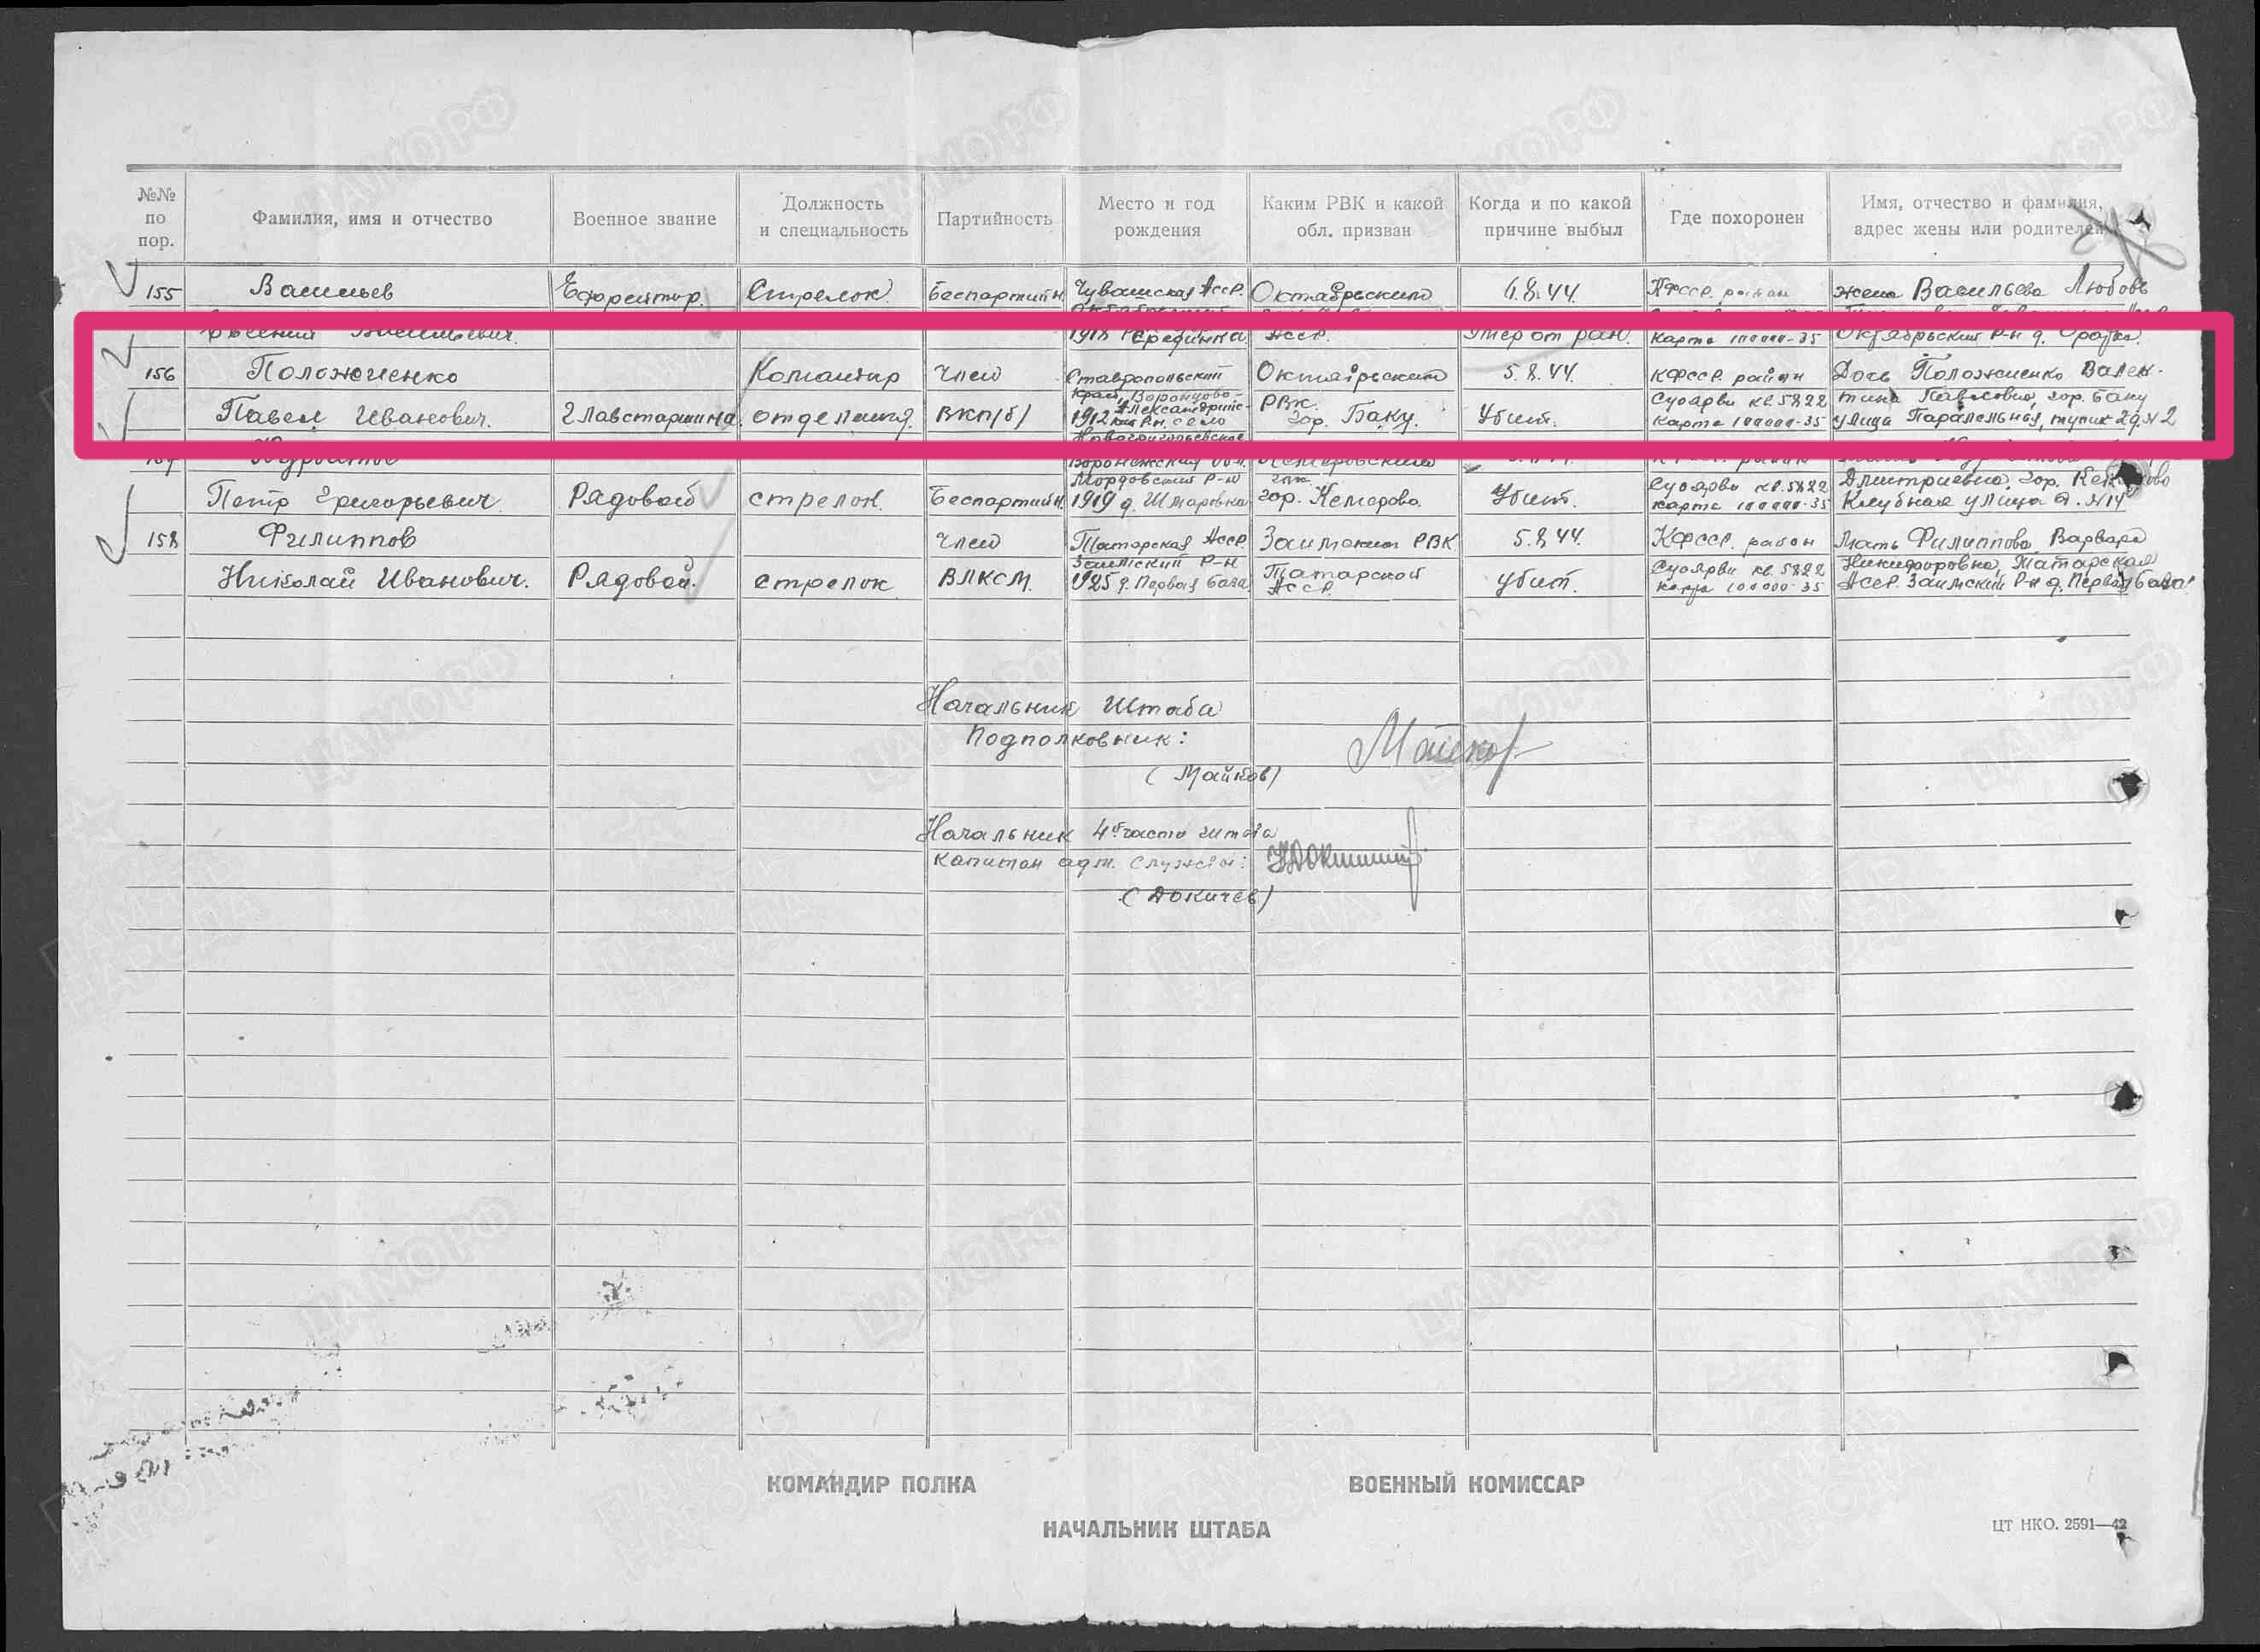 №№ по пор. Фамилия, имя и отчество Военное звание Должность и специальность Партийность Место и год рождения Каким РВК и какой обл. призван Когда и по какой причине выбыл Где похоронен Имя, отчество и фамилия, адрес жены или родителей
155 Васильев Ефрейтор. Стрелок. Беспартийн. Чувашская АССР. Октябрьским 6.8.44. КФССР. район жена Васильева Любовь
1918 АССР. Умер от ран. карта 100000-35 Октябрьский Р-н д.
156 Положиенко Командир член Ставропольский Октябрьским 5.8.44. КФССР. район Дочь Положиенко Вален-
край, Воронцово- Суоярви кв. 5822 тина Павловна, гор. Баку
Павел Иванович. Главстаршина. отделения. ВКП/б/ 1912 Александровс- кий Р-н. село РВК. гор. Баку. Убит. карта 100000-35 улица Паралельная, тупик 2 д. № 2
Мордовский Р-н Суоярви кв. 5822 Дмитриевна, гор.
Петр Григорьевич Рядовой стрелок. Беспартийн. 1919 д. Шмаровка гор. Кемерово. Убит. карта 100000-35 Клубная улица д. №14
158 Филиппов член Татарская АССР. Заимским РВК 5.8.44. КФССР. район Мать Филиппова Варвара
Заимский Р-н Суоярви кв. 5822 Никифоровна, Татарская
Николай Иванович. Рядовой. стрелок ВЛКСМ. 1925 д. Первая База. Татарской АССР. убит. карта 100000-35 АССР. Заимский Р-н д. Первая База.
Начальник Штаба
Подполковник:
(Майков)
Начальник 4й части штаба
капитан адм. службы:
(Докичев)
КОМАНДИР ПОЛКА ВОЕННЫЙ КОМИССАР
НАЧАЛЬНИК ШТАБА
ЦТ НКО. 2591—42
ЦАМО.РФ
ПАМЯТЬ НАРОДА